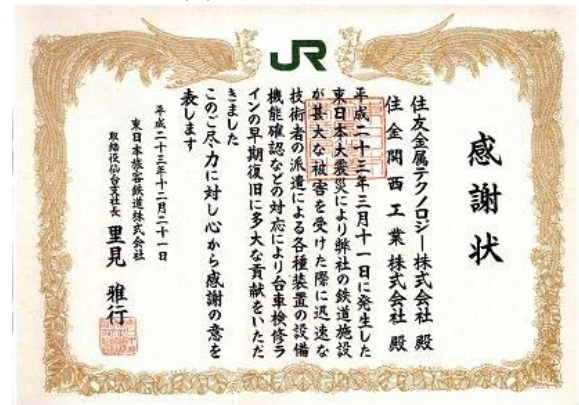 JR
感謝状
住友金属テクノロジー株式会社 殿
住金関西工業株式会社 殿
平成二十三年三月十一日に発生した
東日本大震災により弊社の鉄道施設
が甚大な被害を受けた際に迅速な
技術者の派遣による各種装置の設備
機能確認などの対応により台車検修ラ
インの早期復旧に多大な貢献をいただ
きました
このご尽力に対し心から感謝の意を
表します
平成二十三年十二月二十一日
東日本旅客鉄道株式会社
取締役仙台支社長 里見 雅行